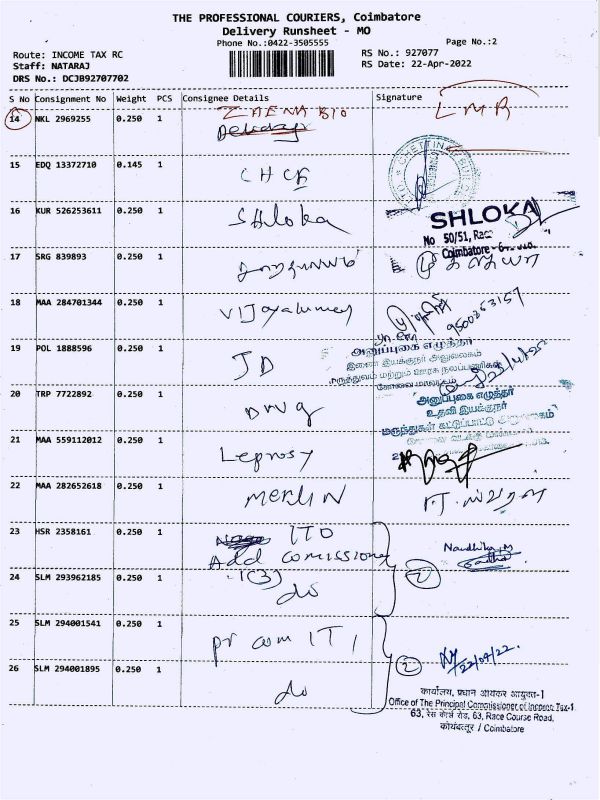 THE PROFESSIONAL COURIERS, Coimbatore
Delivery Runsheet - MO
Phone No.:0422-3505555
Page No.:2
Route: INCOME TAX RC
RS No.: 927077
Staff: NATARAJ
RS Date: 22-Apr-2022
DRS No.: DCJB92707702
S No Consignment No Weight PCS Consignee Details Signature
14 NKL 2969255 0.250 1
LMR
15 EDQ 13372710 0.145 1
16 KUR 526253611 0.250 1 Shloka
SHLOKA
No 50/51, Race
Coimbatore -
17 SRG 839893 0.250 1
18 MAA 284701344 0.250 1
9500263157
19 POL 1888596 0.250 1 JD
அனுப்புகை எழுத்தர்
இணை இயக்குநர் அலுவலகம்
மருத்துவம் மற்றும் ஊரக நலப்பணிகள்
கோவை மாவட்டம்
20 TRP 7722892 0.250 1 Drug
அனுப்புகை எழுத்தர்
உதவி இயக்குநர்
மருந்துகள் கட்டுப்பாட்டு
21 MAA 559112012 0.250 1 Leprosy
22 MAA 282652618 0.250 1 MERLIN
23 HSR 2358161 0.250 1 ITO
Add Comissioner
1(3)
24 SLM 293962185 0.250 1 do
2
25 SLM 294001541 0.250 1 pr com IT 1
2
22/04/22
26 SLM 294001895 0.250 1 do
कार्यालय, प्रधान आयकर आयुक्त-1
Office of The Principal Commissioner of Income Tax-1
63, रेस कोर्स रोड, 63, Race Course Road,
कोयंबत्तूर / Coimbatore